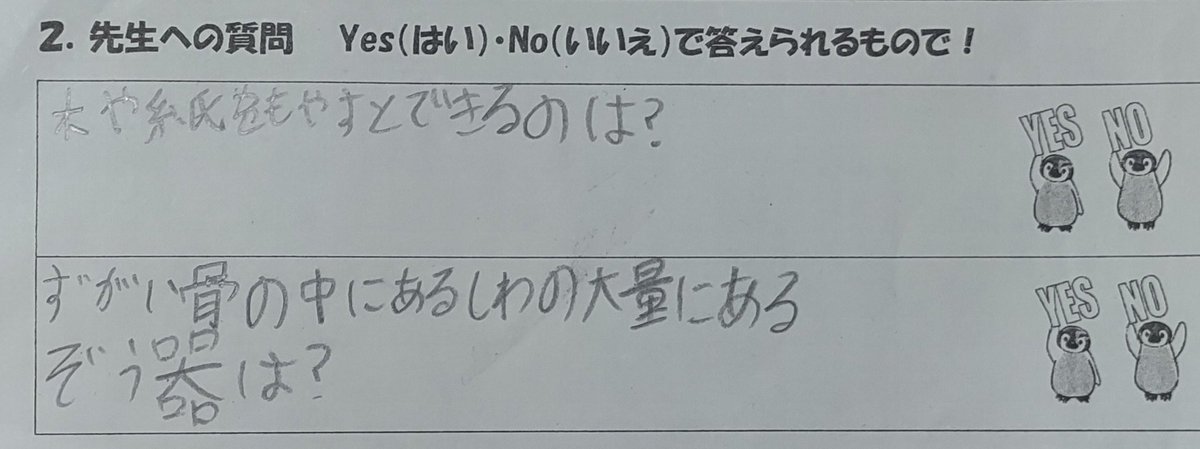 2. 先生への質問　Yes(はい)・No(いいえ)で答えられるもので！
木や紙をもやすとできるのは？
YES NO
ずがい骨の中にあるしわの大量にある
ぞう器は？
YES NO